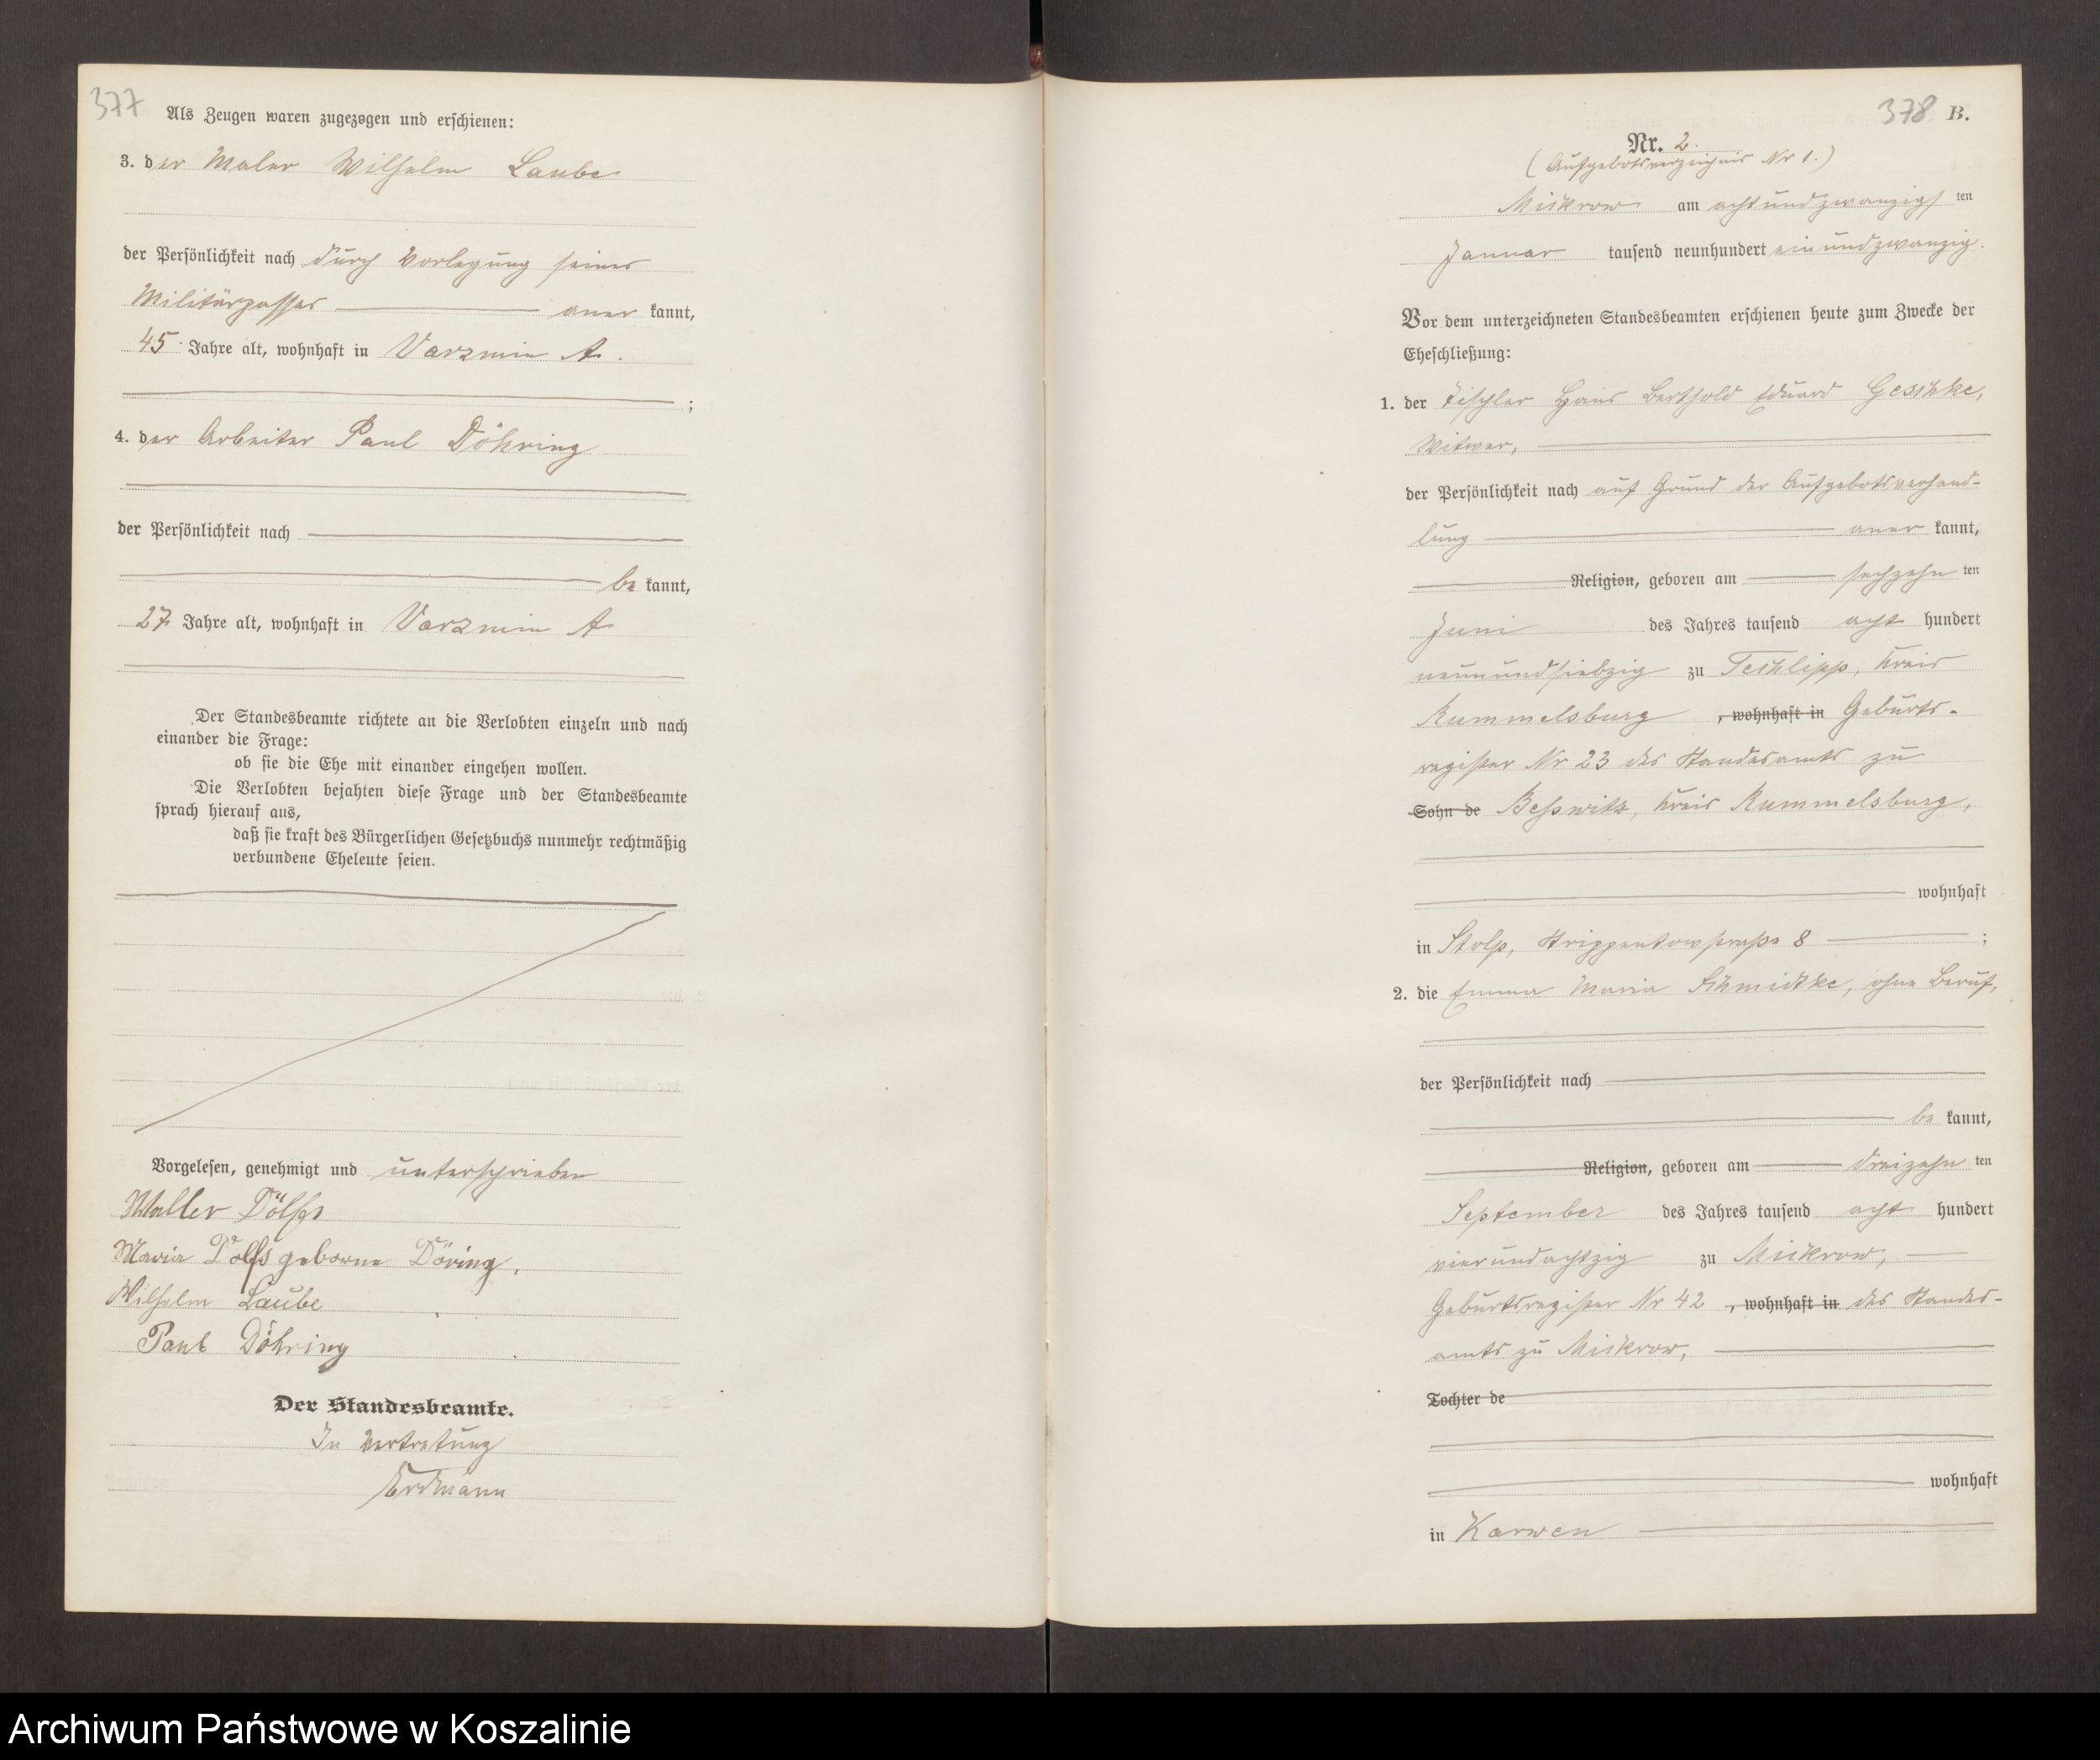 377
Als Zeugen waren zugezogen und erschienen:
3. der Maler Wilhelm Laube
der Persönlichkeit nach durch Vorlegung seines
Militärpasses aner kannt,
45 Jahre alt, wohnhaft in Varzmin A.
;
4. der Arbeiter Paul Döhring
der Persönlichkeit nach
be kannt,
27 Jahre alt, wohnhaft in Varzmin A
Der Standesbeamte richtete an die Verlobten einzeln und nach
einander die Frage:
ob sie die Ehe mit einander eingehen wollen.
Die Verlobten bejahten diese Frage und der Standesbeamte
sprach hierauf aus,
daß sie kraft des Bürgerlichen Gesetzbuchs nunmehr rechtmäßig
verbundene Eheleute seien.
Vorgelesen, genehmigt und unterschrieben
Walter Dölfs
Maria Dölfs geborne Döring.
Wilhelm Laube
Paul Döhring
Der Standesbeamte.
In Vertretung
Erdmann
378 B.
Nr. 2.
(Aufgebotsverzeichnis Nr 1.)
Mickrow am achtundzwanzigs ten
Januar tausend neunhundert einundzwanzig.
Vor dem unterzeichneten Standesbeamten erschienen heute zum Zwecke der
Eheschließung:
1. der Tischler Hans Berthold Eduard Geschke,
Witwer,
der Persönlichkeit nach auf Grund der Aufgebotsverhand-
lung aner kannt,
Religion, geboren am sechzehn ten
Juni des Jahres tausend acht hundert
neunundsiebzig zu Techlipp, Kreis
Rummelsburg , wohnhaft in Geburts-
register Nr 23 des Standesamts zu
Sohn de Beßwitz, Kreis Rummelsburg,
wohnhaft
in Stolp, Strippentowstraße 8 ;
2. die Emma Maria Schmidtke, ohne Beruf,
der Persönlichkeit nach
be kannt,
Religion, geboren am dreizehn ten
September des Jahres tausend acht hundert
vierundachtzig zu Mickrow,
Geburtsregister Nr 42 , wohnhaft in des Standes-
amts zu Mickrow,
Tochter de
wohnhaft
in Karwen
Archiwum Państwowe w Koszalinie